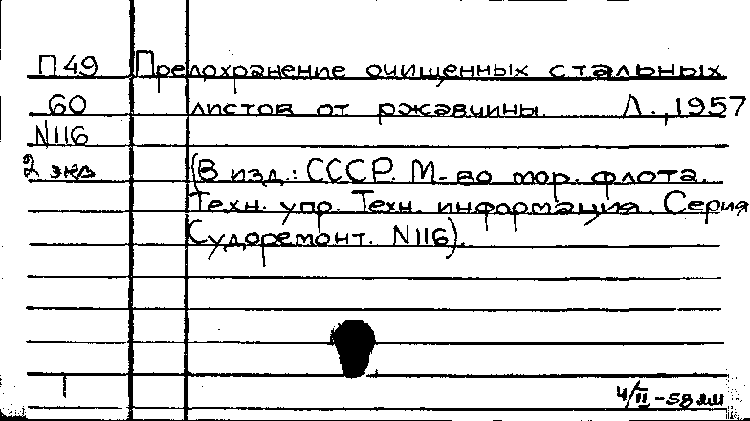 П49 Предохранение очищенных стальных
60 листов от ржавчины. Л., 1957
N116
2 экз (В изд.: СССР. М-во мор. флота.
Техн. упр. Техн. информация. Серия
Судоремонт. N116).
4/II-58